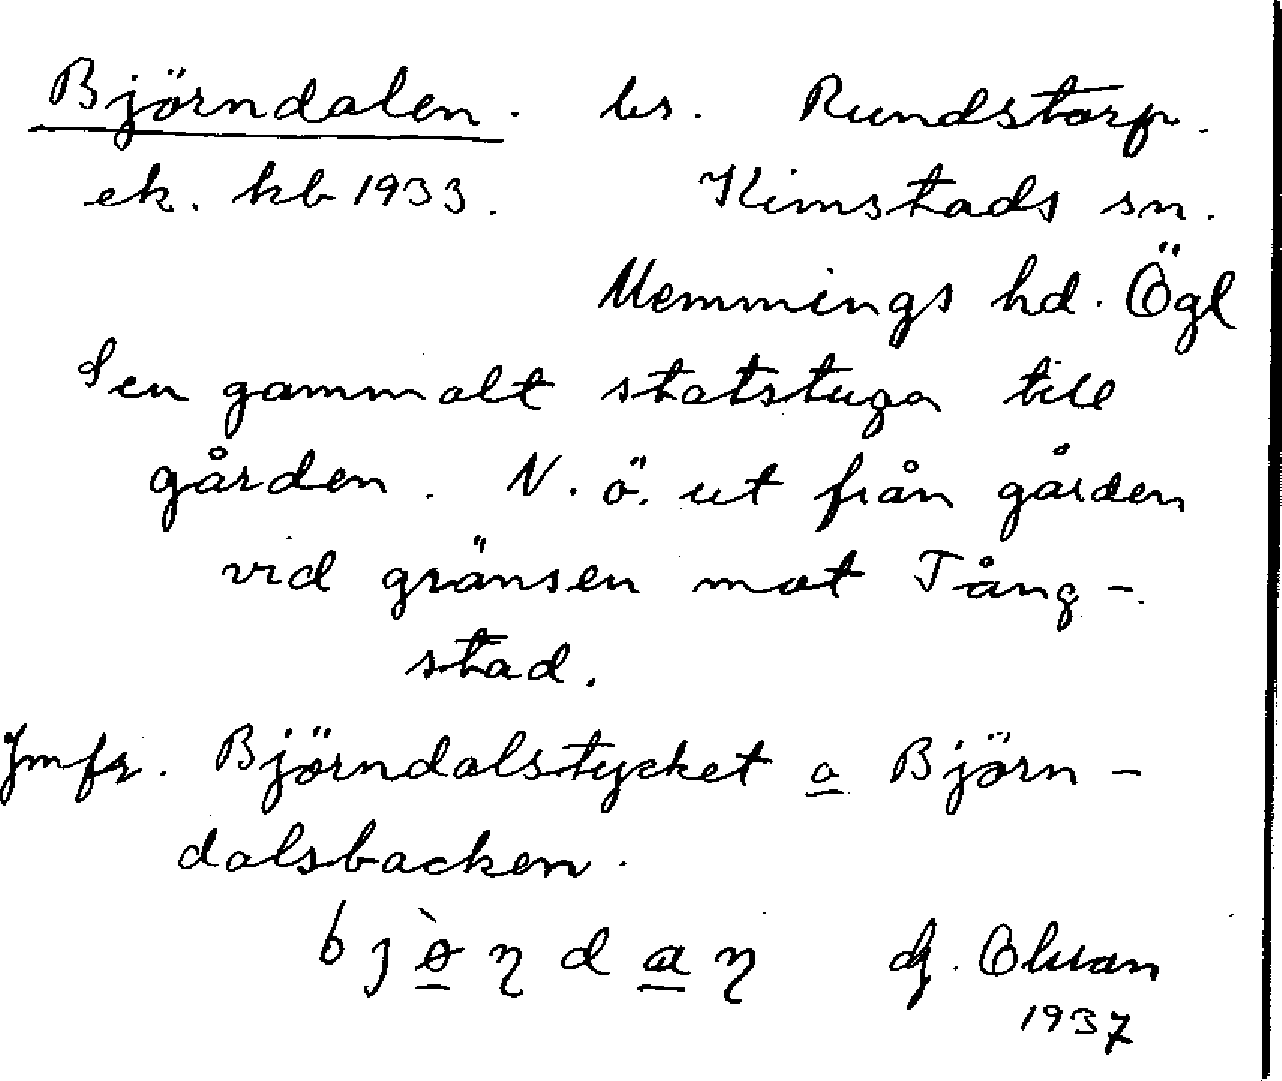 Björndalen. bs. Rundstorp.
ek. kb 1933. Kimstads sn.
Memmings hd. Ögl
en gammalt statstuga till
gården. N. ö. ut från gården
vid gränsen mot Tång-
stad.
Jmfr. Björndalstycket o Björn-
dalsbacken.
1937